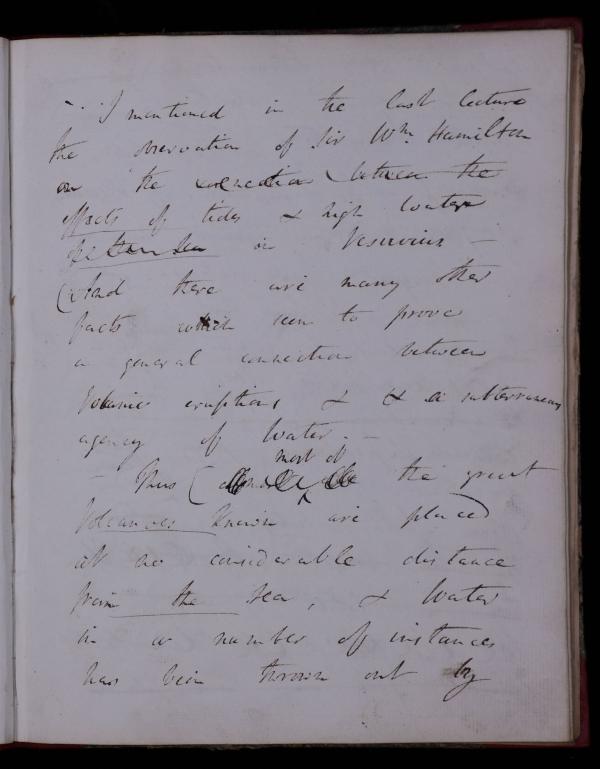 - I mentioned in the last lecture
the observation of Sir Wm. Hamilton
on the connection between the
effects of tides & high water
in Vesuvius -
(And there are many other
facts which seem to prove
a general connection between
Volcanic eruptions & a subterraneous
agency of Water. -
most of
- Thus ( the great
Volcanoes known are placed
at no considerable distance
from the sea, & Water
in a number of instances
has been thrown out by